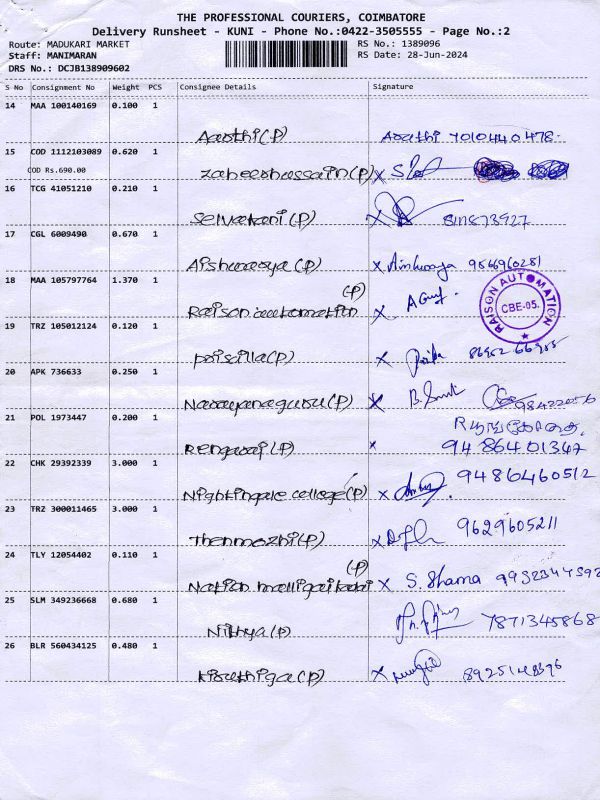 THE PROFESSIONAL COURIERS, COIMBATORE
Delivery Runsheet - KUNI - Phone No.:0422-3505555 - Page No.:2
Route: MADUKARI MARKET
RS No.: 1389096
Staff: MANIMARAN
RS Date: 28-Jun-2024
DRS No.: DCJB138909602
S No Consignment No Weight PCS Consignee Details Signature
14 MAA 100140169 0.100 1
Aarthi(P) Aarthi 7010440478
15 COD 1112103089 0.620 1
COD Rs.690.00
zaheerhussain(P) x
16 TCG 41051210 0.210 1
Selvakani(P) x
17 CGL 6009490 0.670 1
Aishwarya (P) x Aishwarya 9566960281
18 MAA 105797764 1.370 1
(P)
Raison automation x
RAISON AUTOMATION
CBE-05.
19 TRZ 105012124 0.120 1
priscilla(P) x
20 APK 736633 0.250 1
Narayanaguru(P) x
21 POL 1973447 0.200 1
Rengaraj(P) x 9486401347
22 CHK 29392339 3.000 1
Nightingale college(P) x 9486460512
23 TRZ 300011465 3.000 1
Thenmozhi(P) x 9629605211
24 TLY 12054402 0.110 1
(P)
x S. Shama
25 SLM 349236668 0.680 1
Nithya(P) 7871345868
26 BLR 560434125 0.480 1
kiruthiga(P) x